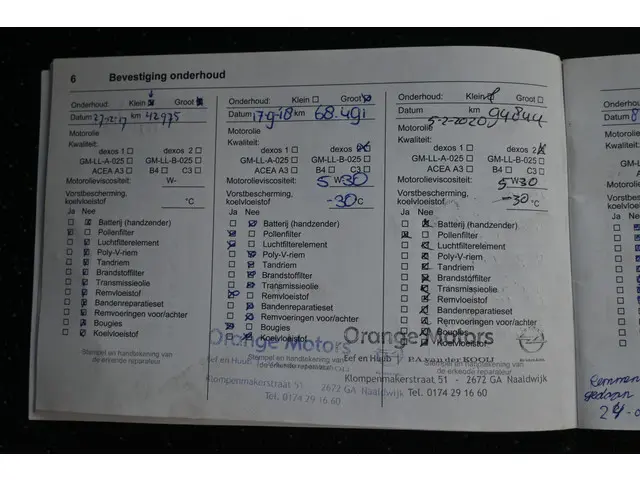 6 Bevestiging onderhoud
Onderhoud: Klein Groot
Datum 27-12-17 km 42975
Motorolie
Kwaliteit:
dexos 1 dexos 2
GM-LL-A-025 GM-LL-B-025
ACEA A3 B4 C3
Motorolieviscositeit: W-
Vorstbescherming,
koelvloeistof °C
Ja Nee
Batterij (handzender)
Pollenfilter
Luchtfilterelement
Poly-V-riem
Tandriem
Brandstoffilter
Transmissieolie
Remvloeistof
Bandenreparatieset
Remvoeringen voor/achter
Bougies
Koelvloeistof
Stempel en handtekening van
de erkende reparateur
Onderhoud: Klein Groot
Datum 17-9-18 km 68.491
Motorolie
Kwaliteit:
dexos 1 dexos
GM-LL-A-025 GM-LL-B-025
ACEA A3 B4 C3
Motorolieviscositeit: 5 W 30
Vorstbescherming,
koelvloeistof -30 °C
Ja Nee
Batterij (handzender)
Pollenfilter
Luchtfilterelement
Poly-V-riem
Tandriem
Brandstoffilter
Transmissieolie
Remvloeistof
Bandenreparatieset
Remvoeringen voor/achter
Bougies
Koelvloeistof
Orange Motors
Eef en Huub
Stempel en handtekening van
de erkende reparateur
Klompenmakerstraat 51 - 2672 GA Naaldwijk
Tel. 0174 29 16 60
Onderhoud: Klein Groot
Datum 5-2-2020 km 94844
Motorolie
Kwaliteit:
dexos 1 dexos 2
GM-LL-A-025 GM-LL-B-025
ACEA A3 B4 C3
Motorolieviscositeit: 5 W 30
Vorstbescherming,
koelvloeistof -30 °C
Ja Nee
Batterij (handzender)
Pollenfilter
Luchtfilterelement
Poly-V-riem
Tandriem
Brandstoffilter
Transmissieolie
Remvloeistof
Bandenreparatieset
Remvoeringen voor/achter
Bougies
Koelvloeistof
Orange Motors
Eef en Huub P.A. van der KOOIJ
Stempel en handtekening van
de erkende reparateur
Klompenmakerstraat 51 - 2672 GA Naaldwijk
Tel. 0174 29 16 60
Datum 8
Ja
gedaan